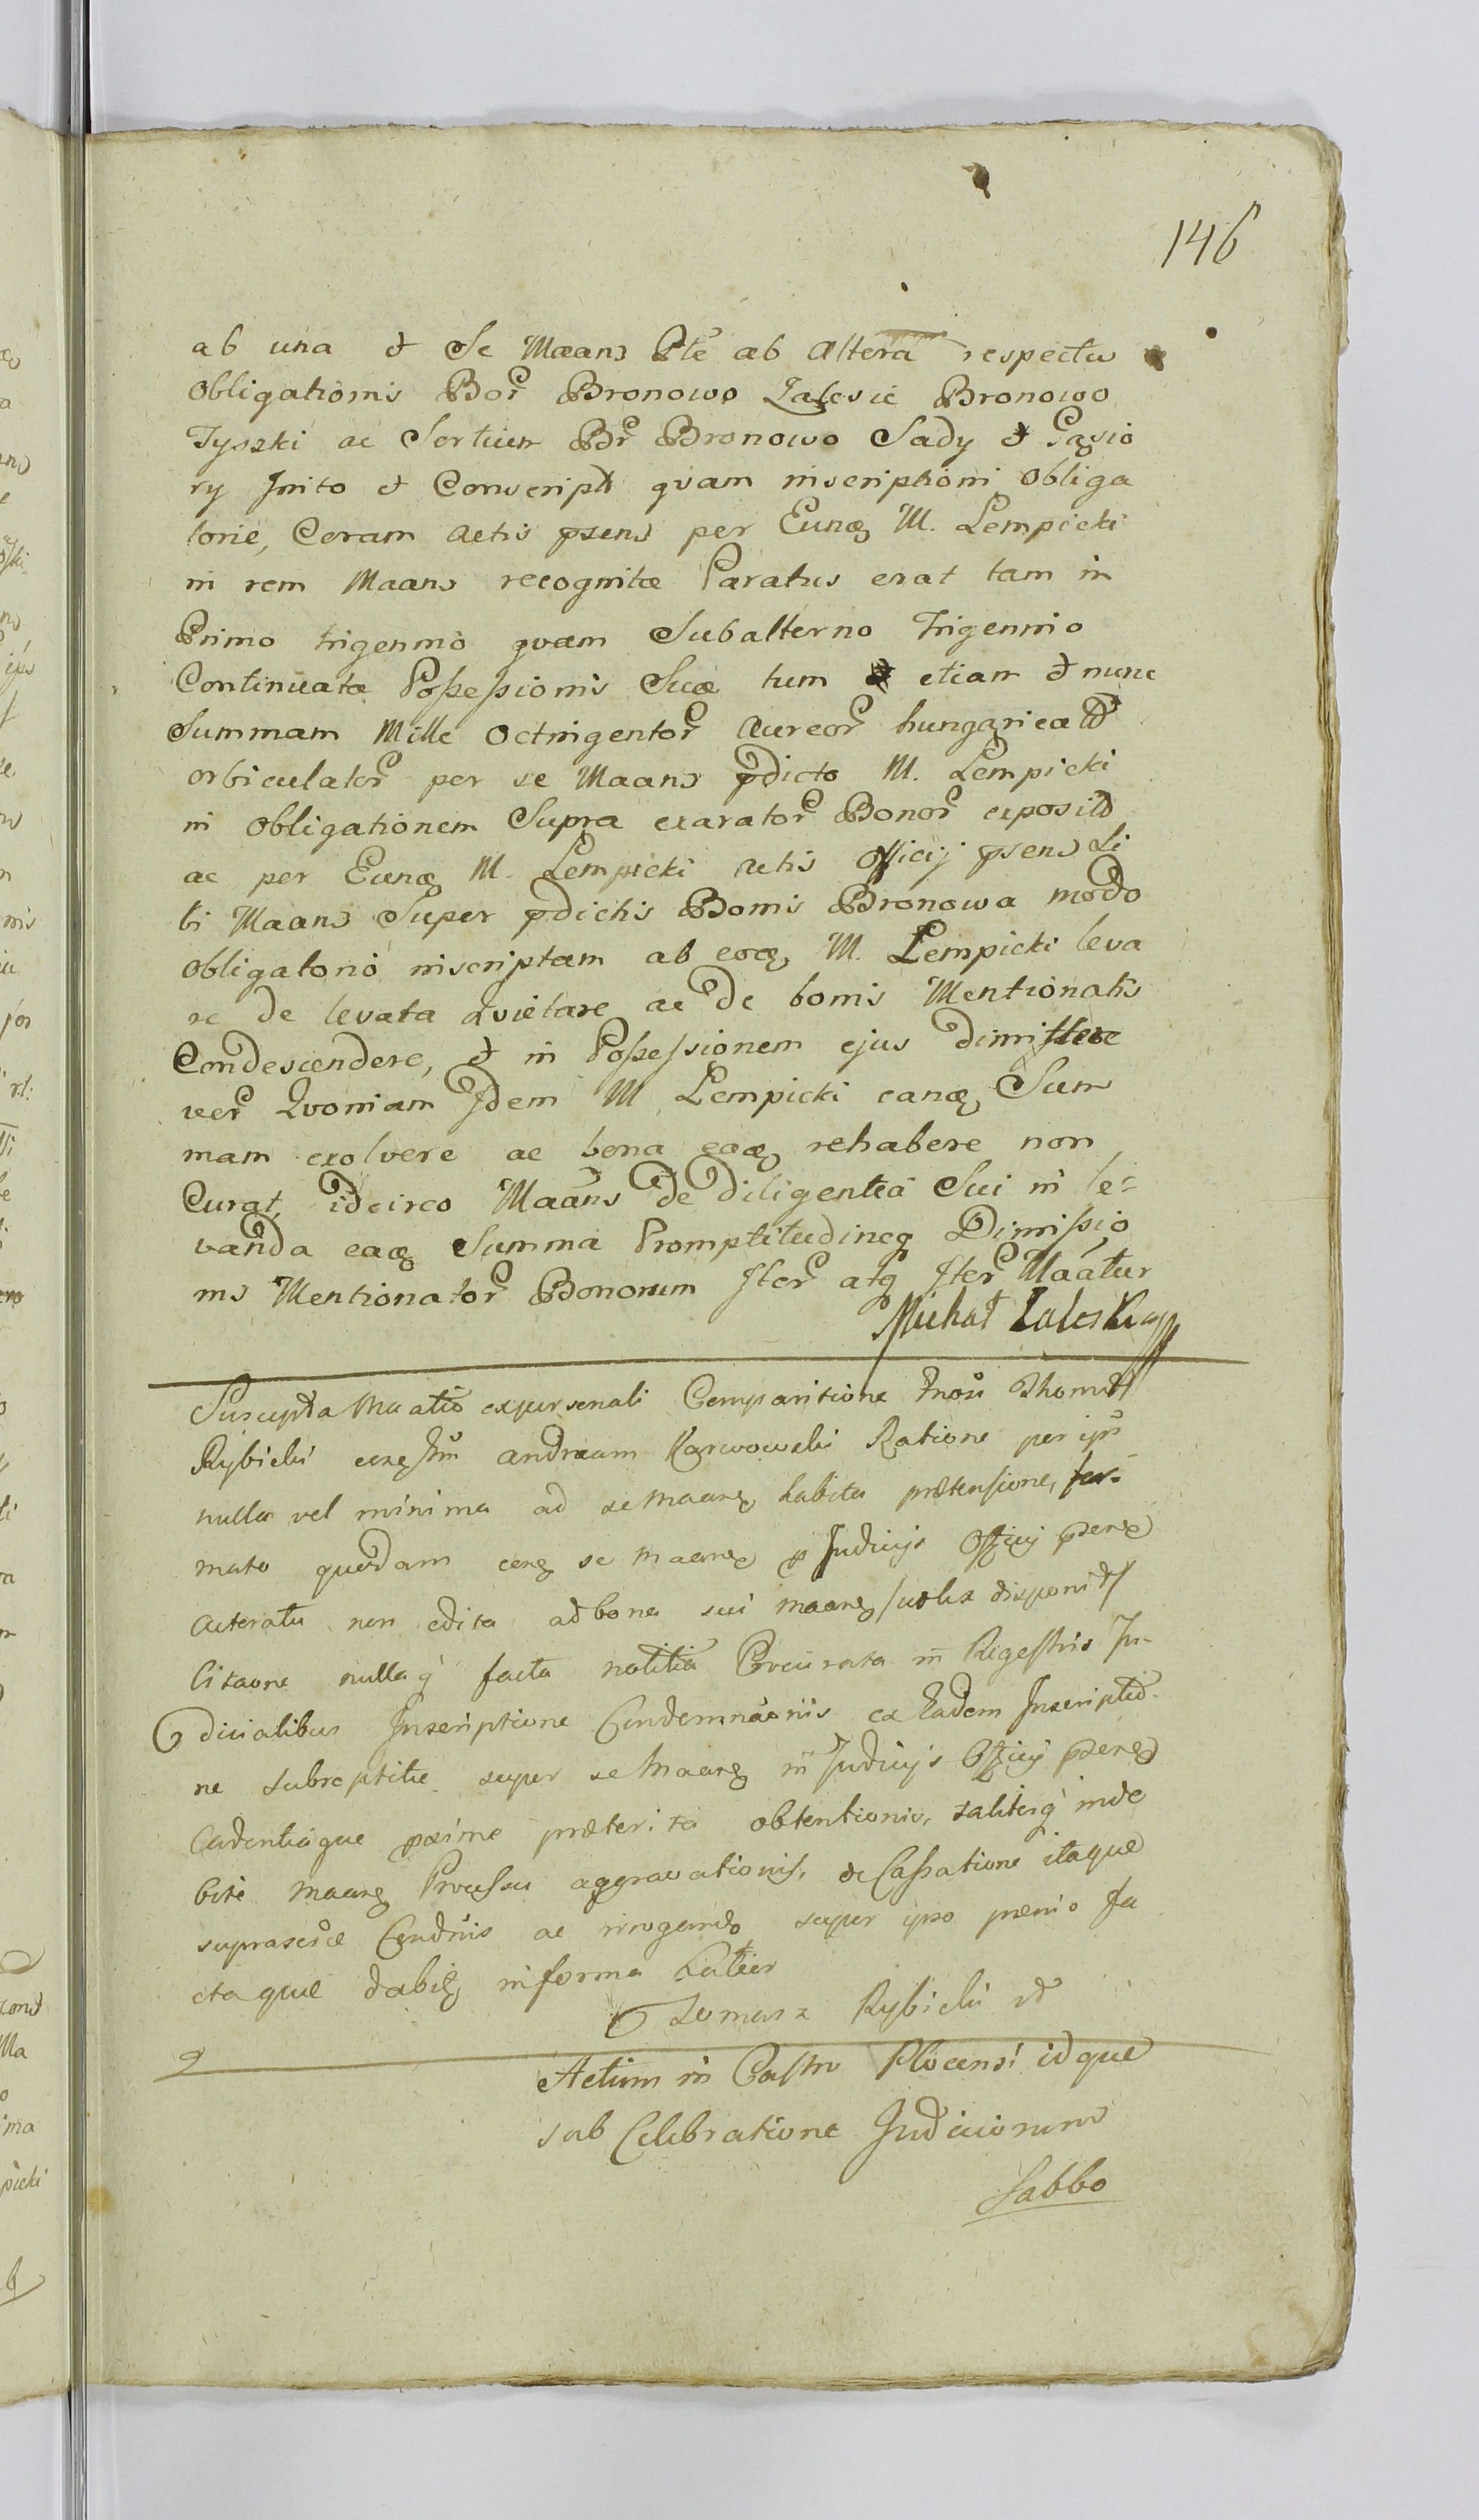 146
ab una & Se Maans Pte ab Altera respectu
Obligationis Bor Bronowo Zalesie Bronowo
Tyszki ac Sortium Br Bronowo Sady & Gąsio
ry Inito & Conscript quam inscriptioni Obliga
torie, Coram Actis psens per Eunq M. Lempicki
in rem Maans recognitæ Paratus erat tam in
Primo trigennio quam Subalterno Trigennio
Continuatæ Possessionis Suæ tum etiam & nunc
Summam Mille Octingentor Aureor hungarical
orbiculator per se Maans pdicto M. Lempicki
in Obligationem Supra exarator Bonor exposit
ac per Eunq M. Lempicki Actis Officij psens Si
bi Maans Super pdictis Bonis Bronowa modo
Obligatorio inscriptam ab eoq M. Lempicki leva
re de levata Quietare ac de bonis Mentionatis
Condescendere, & in Possessionem ejus dimittere
ver Quoniam Idem M Lempicki eanq Sum
mam exolvere ac bona eaq rehabere non
Curat, idcirco Maans de diligentia Sui in le=
vanda eaq Summa Promptitudineq Dimissio
nis Mentionator Bonorum Iter atq Iter Maatur
Michał Zaleski
Suscepta Maatio expersonali Comparitione Thom
Rybicki Andream Karwowski Ratione per ips
nulla vel minima ad se maanq habita prætensione, for=
mato quodam se maanq p Judicijs Officij psenq
non edita ad bona sui maanq disponi
Citaone nullaq facta notitia Procurata in Regestris Ju-
dicialibus Inscriptione Condemnaonis ex Eadem Inscriptio-
ne subreptitie super se Maanq in Judicijs Officij psenq
Cadentiaque pxime præterita obtentionis, taliterq inde
bite maanq Processu aggravationis, de Cassatione itaque
suprascr Condnis ac irrogando super ipso præmio fa
ctaque dabit informa Latior
Tomasz Rybicki
Actum in Castro Plocensi idque
sub Celebratione Judiciorum
Sabbo